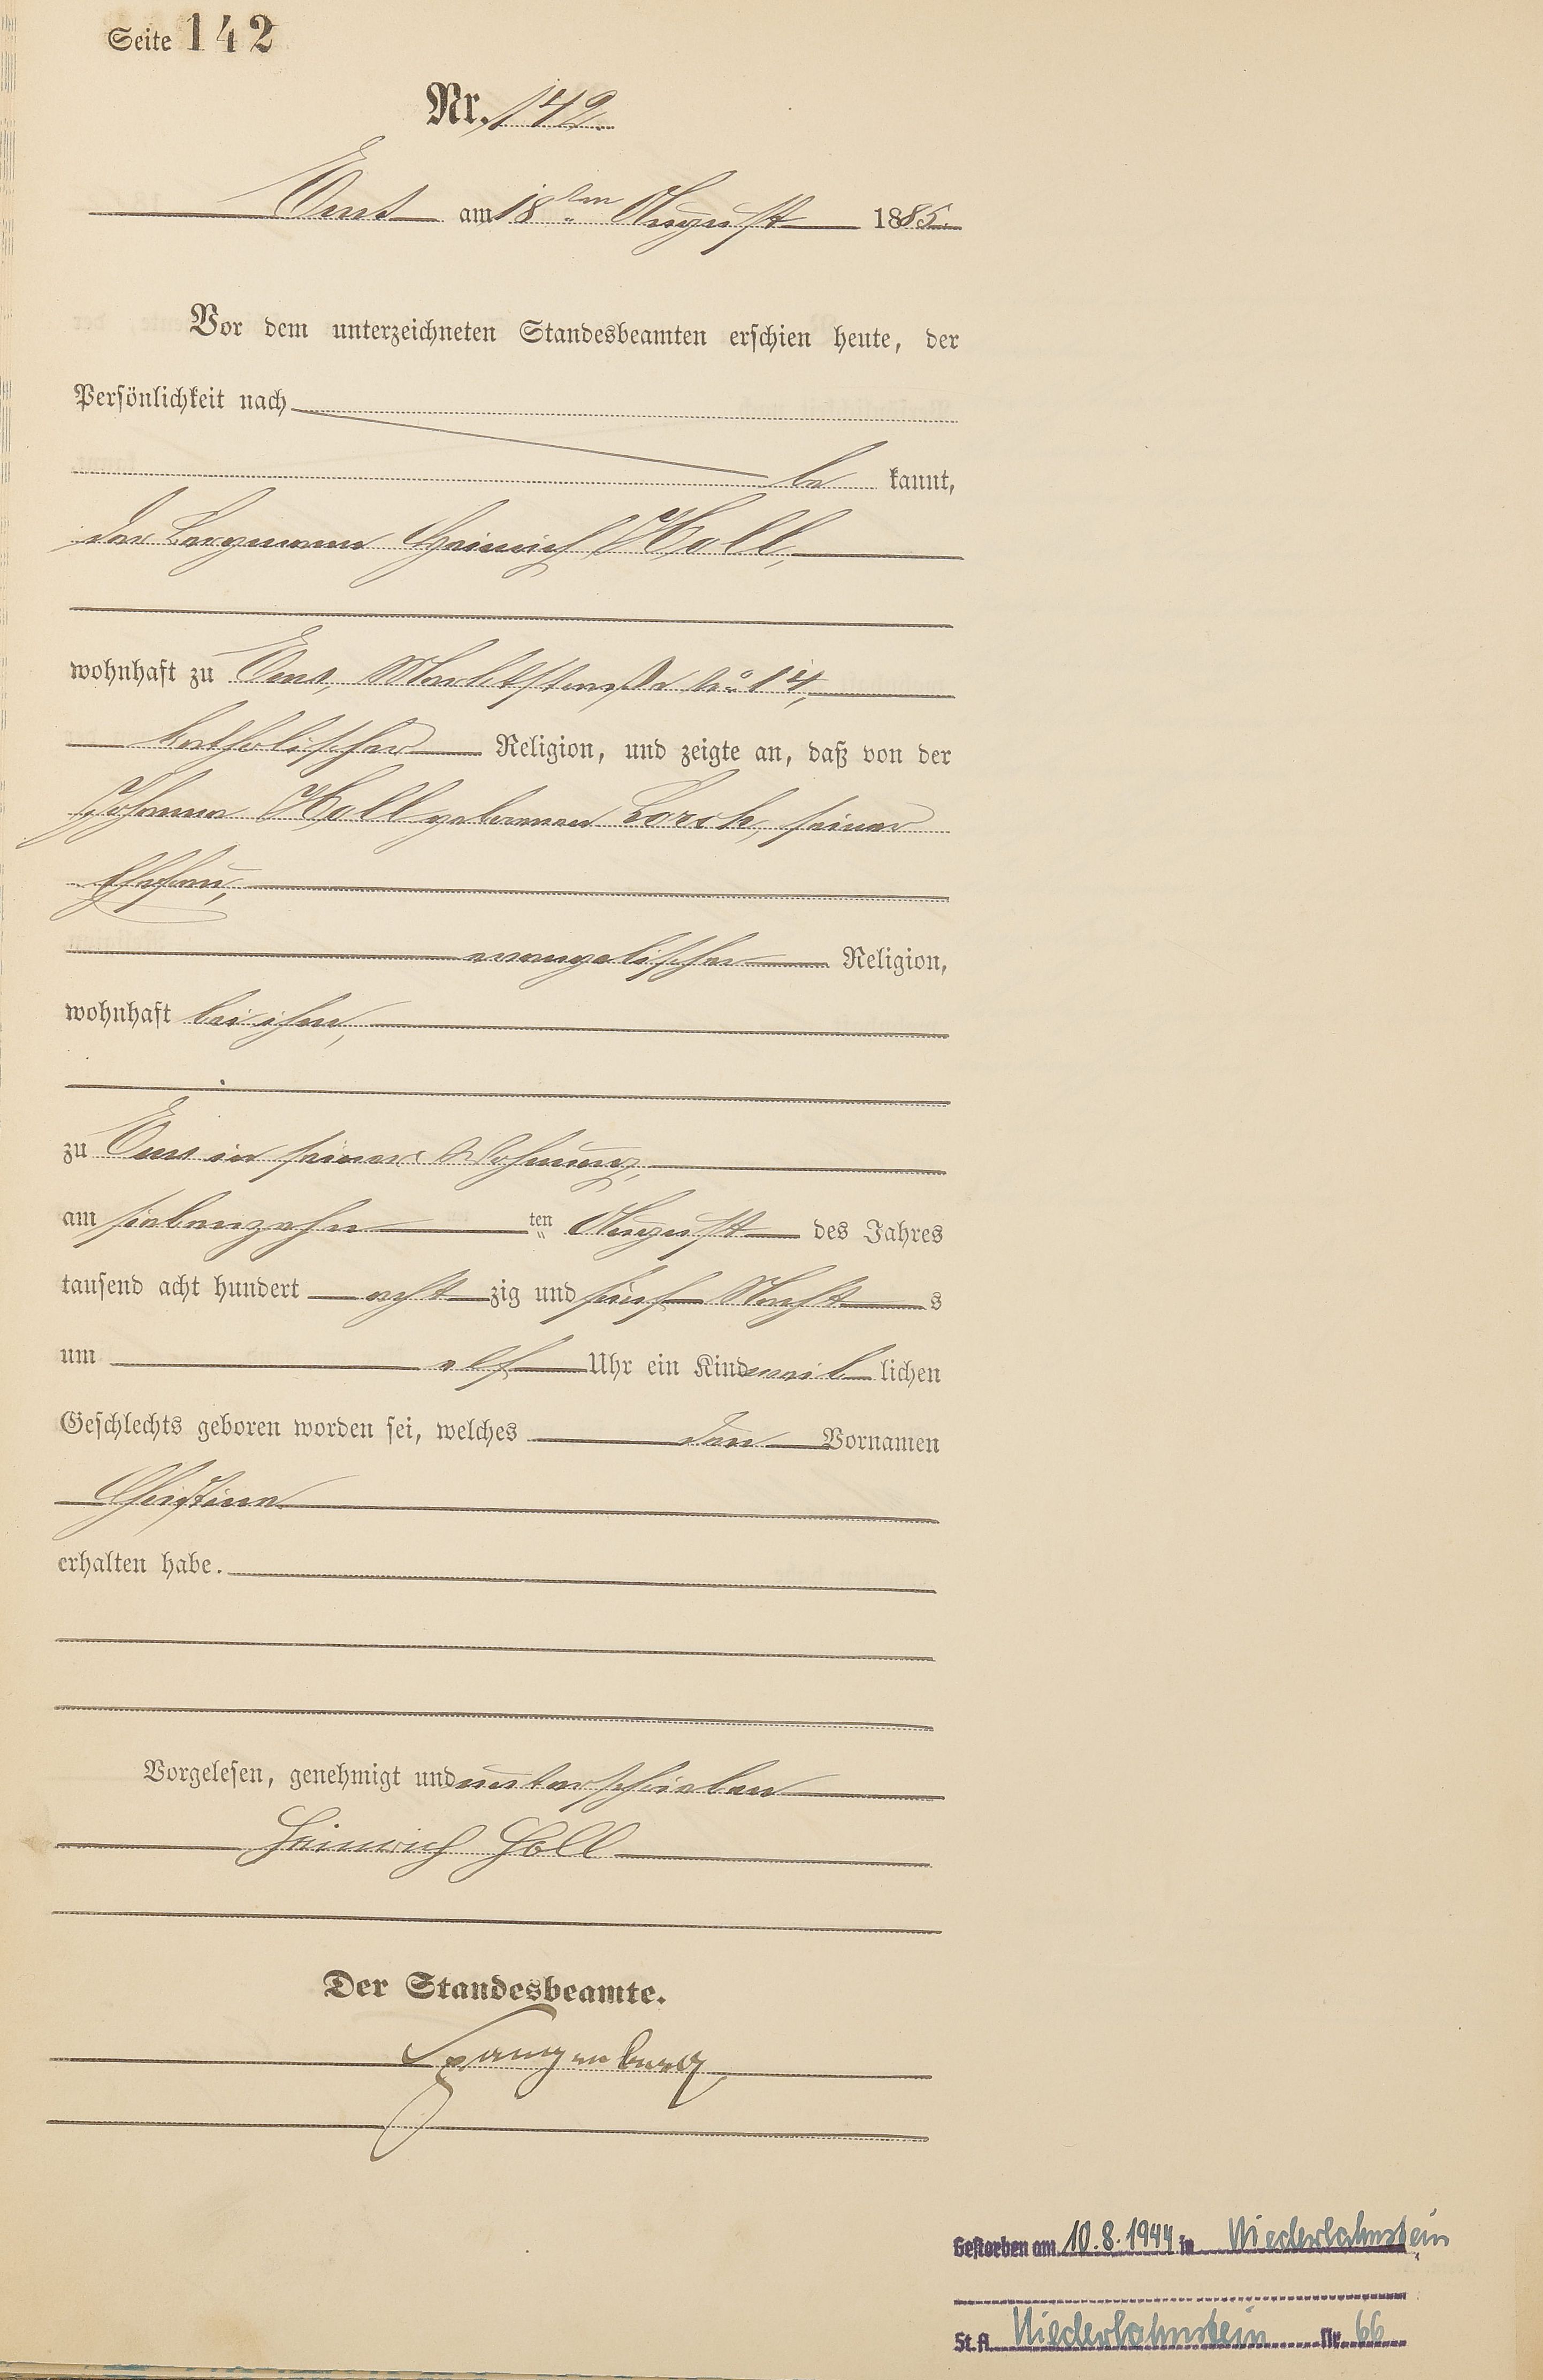 Seite 142
Nr. 142.
Ems am 18ten August 1885.
Vor dem unterzeichneten Standesbeamten erschien heute, der
Persönlichkeit nach
be kannt,
der Bergmann Heinrich Holl,
wohnhaft zu Ems, Marktstraße No 14,
katholischer Religion, und zeigte an, daß von der
Johanna Holl geborenen Lorch, seiner
Ehefrau,
evangelischer Religion,
wohnhaft bei ihm,
zu Ems in seiner Wohnung,
am siebenzehn ten August des Jahres
tausend acht hundert acht zig und fünf Nacht s
um elf Uhr ein Kind weib lichen
Geschlechts geboren worden sei, welches den Vornamen
Christina
erhalten habe.
Vorgelesen, genehmigt und unterschrieben
Heinrich Holl
Der Standesbeamte.
Spangenberg
Gestorben am 10.8.1944 in Niederlahnstein
St.A. Niederlahnstein Nr. 66